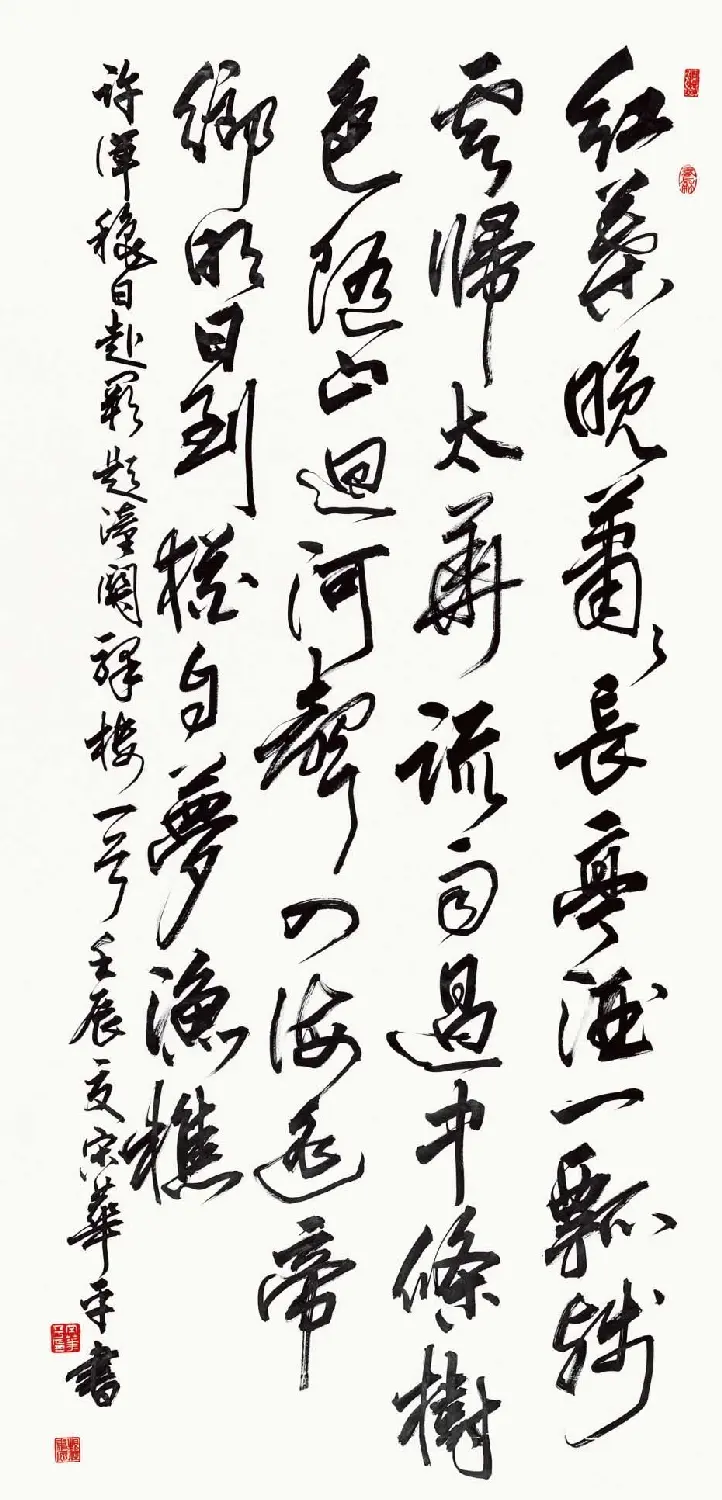 紅葉晚蕭々長亭酒一瓢殘
雲歸太華疏雨過中條樹
色隨山迴河聲入海遥帝
鄉明日到猶自夢漁樵
許渾穐日赴闕題潼關驛樓一首壬辰夏宋華平書